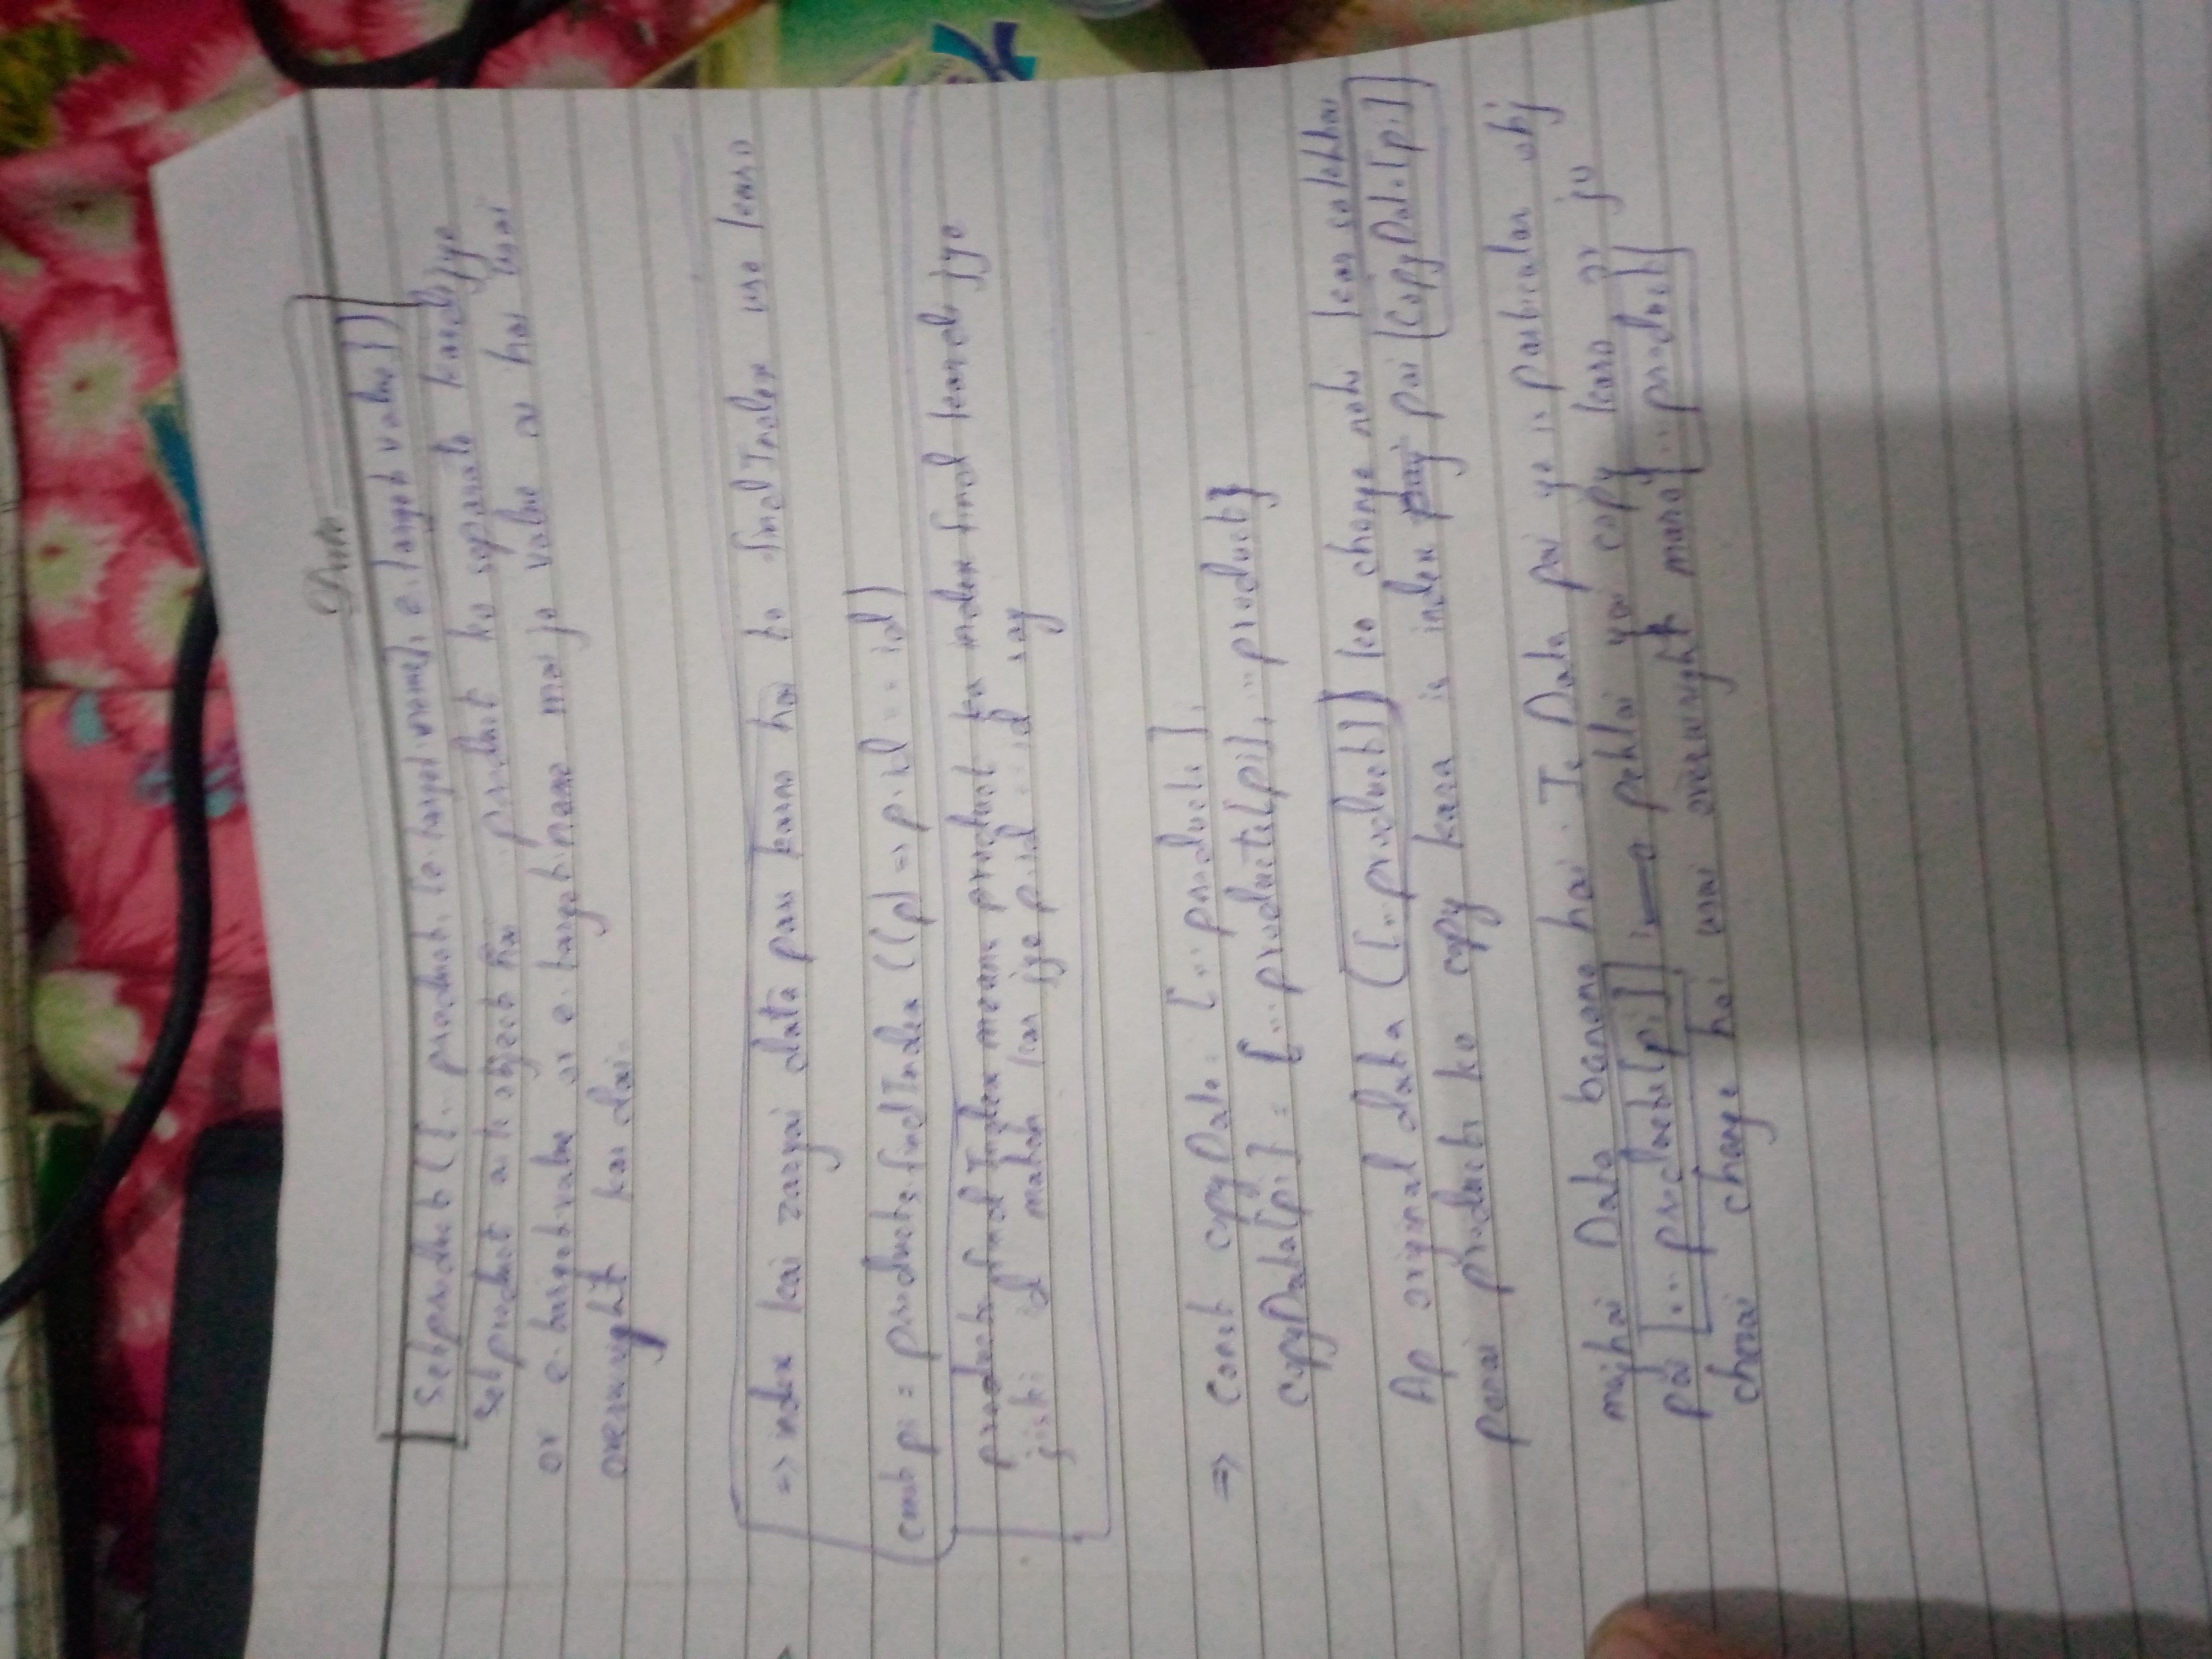 Date
Setproduct ({... product, [e.target.name]: e.target.value})
Setproduct ak object hai product ko separate kardijye
or e.target.value or e.target.name mai jo value ai hai usai
overwright kar dai.
=> index kai zaryai data pass karna hai to findIndex use karo
const pi = products.findIndex ((p) => p.id == id)
products.findIndex means product ka index find karlo jye
jiski id match kar jye p.id == id say
=> Const copyData = [...products],
copyData[pi] = {...products[pi], ...product}
Ap original data ([...product]) ko change nahi kar sakthai
products ko copy kara is index pai [copyData[pi]]
mujhai Data banana hai. Is Data pai ye is particular obj
pai [...products[pi]] pehlai yai copy karo or ju
change hai usai overwright maro [...product]